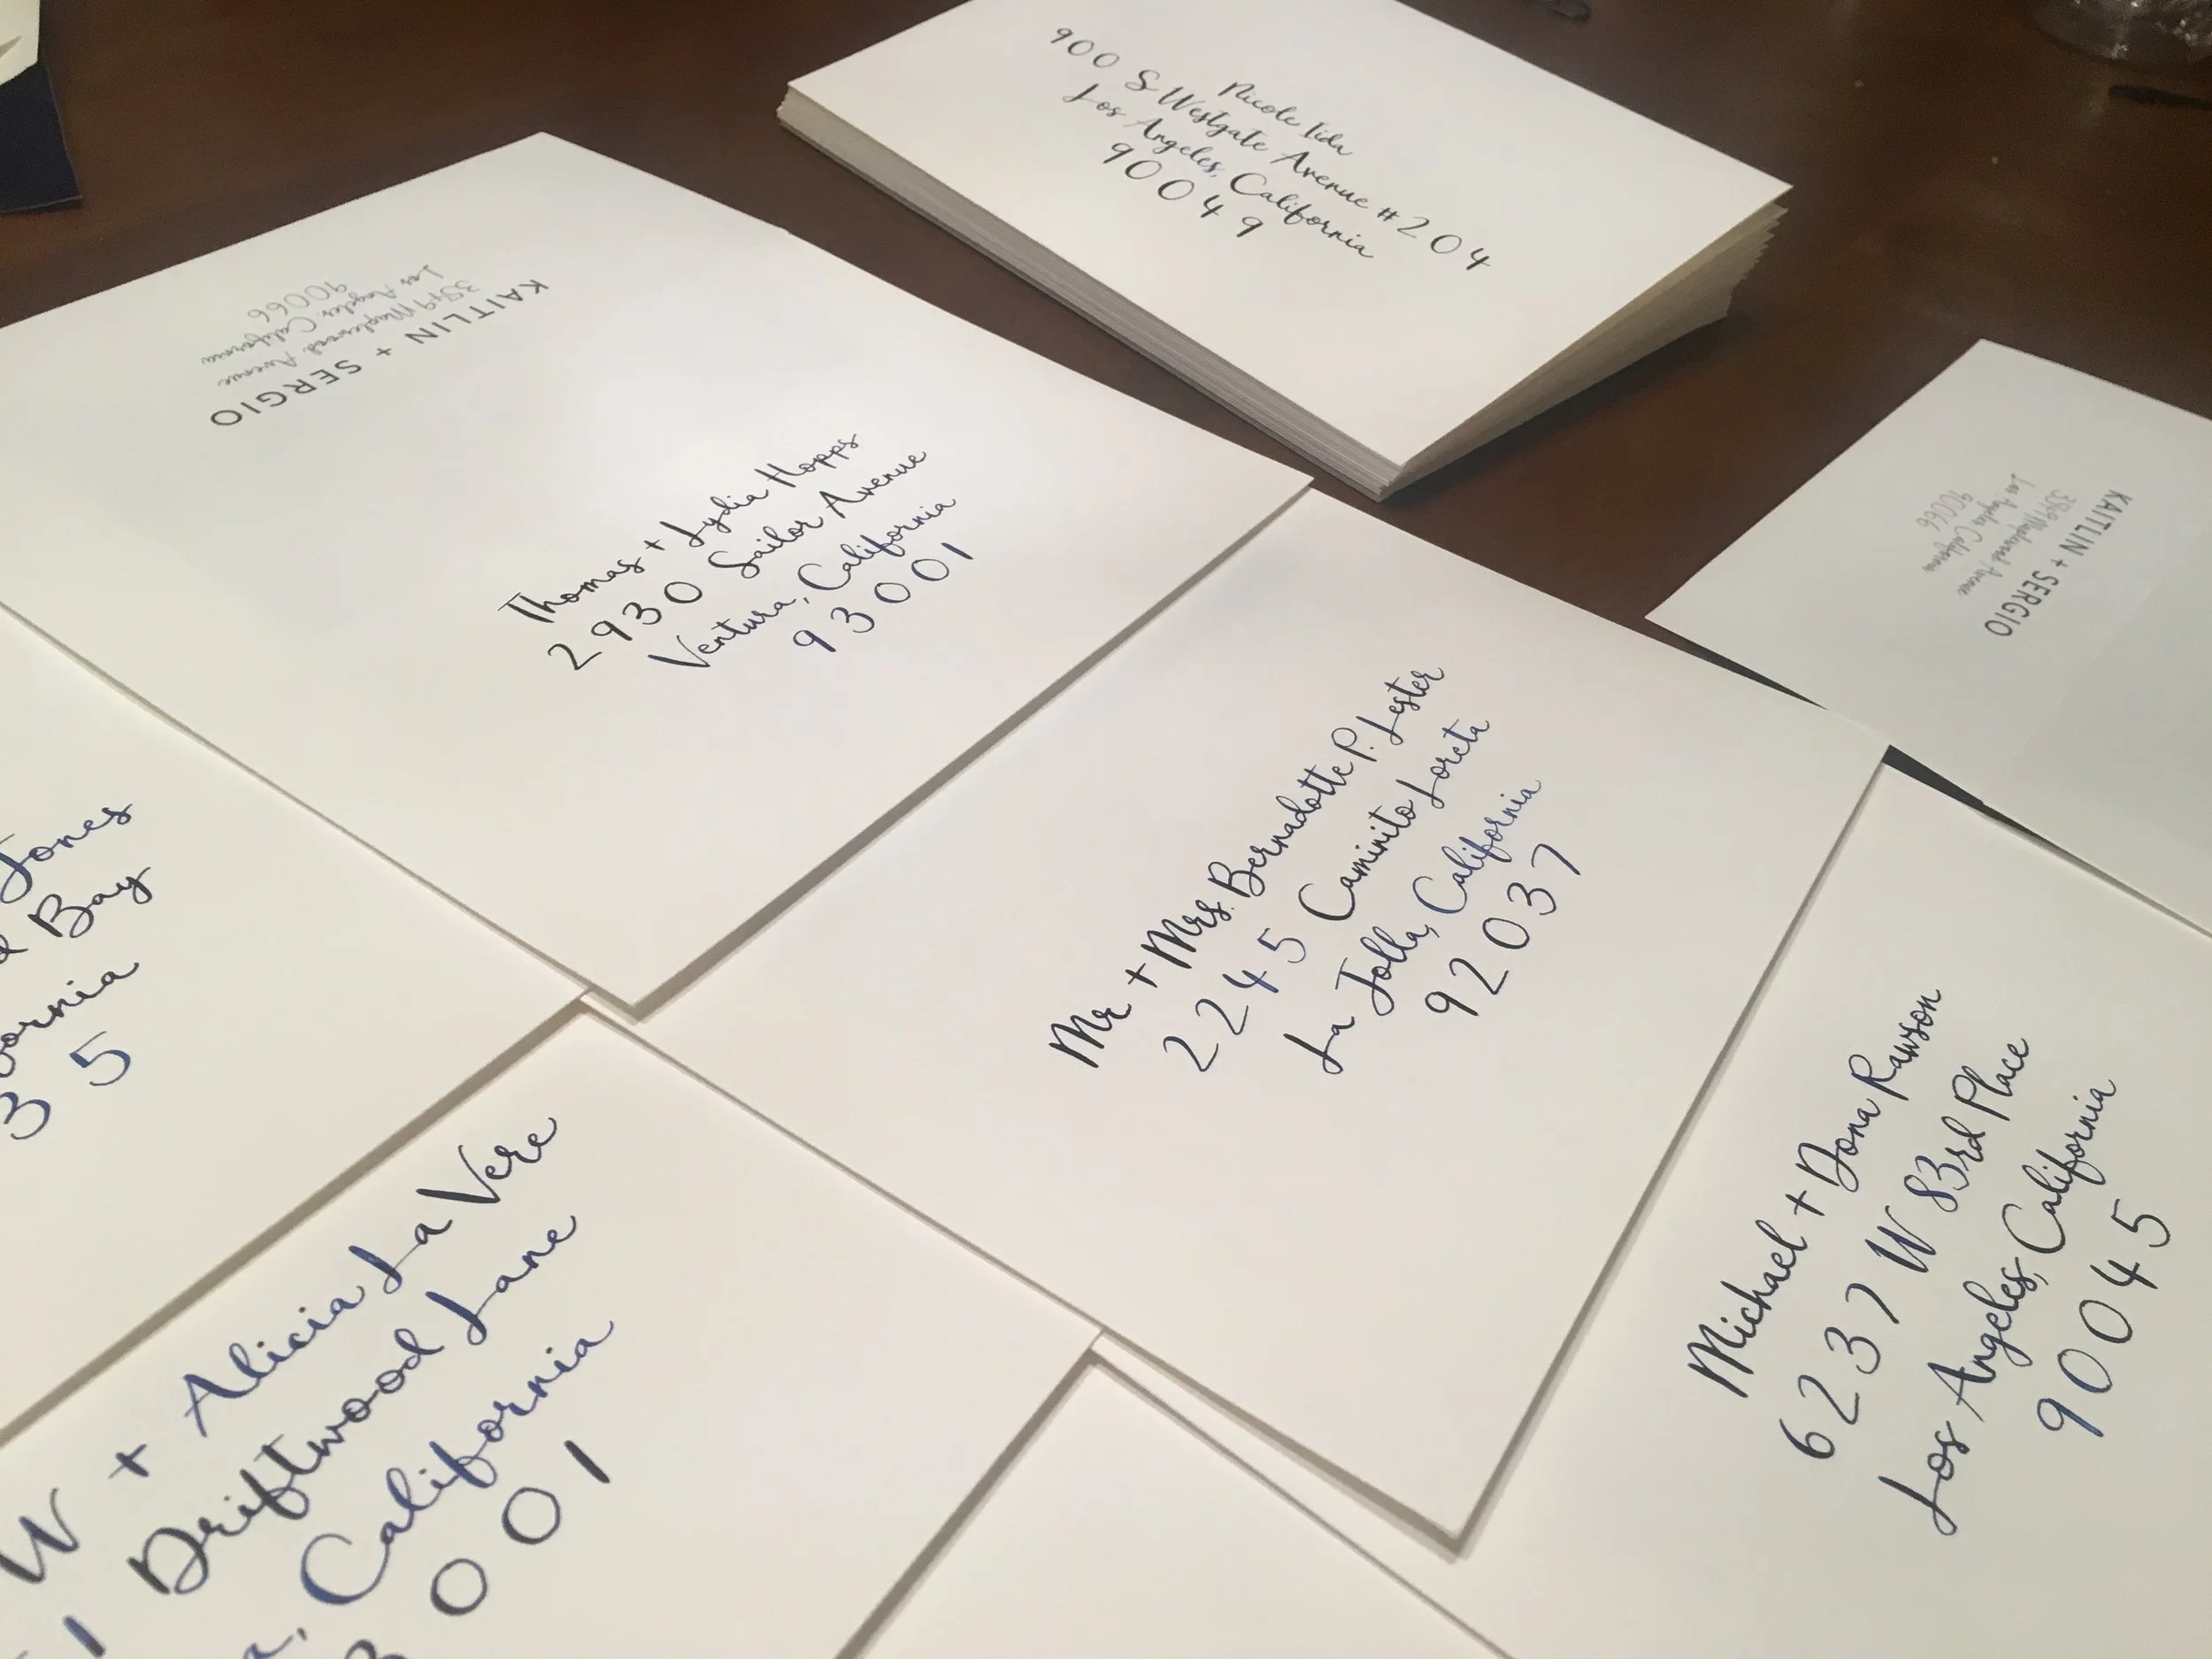 Nicole Iida
900 S Westgate Avenue #204
Los Angeles, California
90049
KAITLIN + SERGIO
Maplewood Avenue
Los Angeles, California
90066
Thomas + Lydia Hopps
2930 Sailor Avenue
Ventura, California
93001
KAITLIN + SERGIO
Maplewood Avenue
Los Angeles, California
90066
Mr + Mrs. Bernadotte P. Lester
2245 Caminito Loreta
La Jolla, California
92037
Jones
Bay
35
Michael + Dona Rawson
6237 W 83rd Place
Los Angeles, California
90045
W + Alicia La Vere
1 Driftwood Lane
California
3001